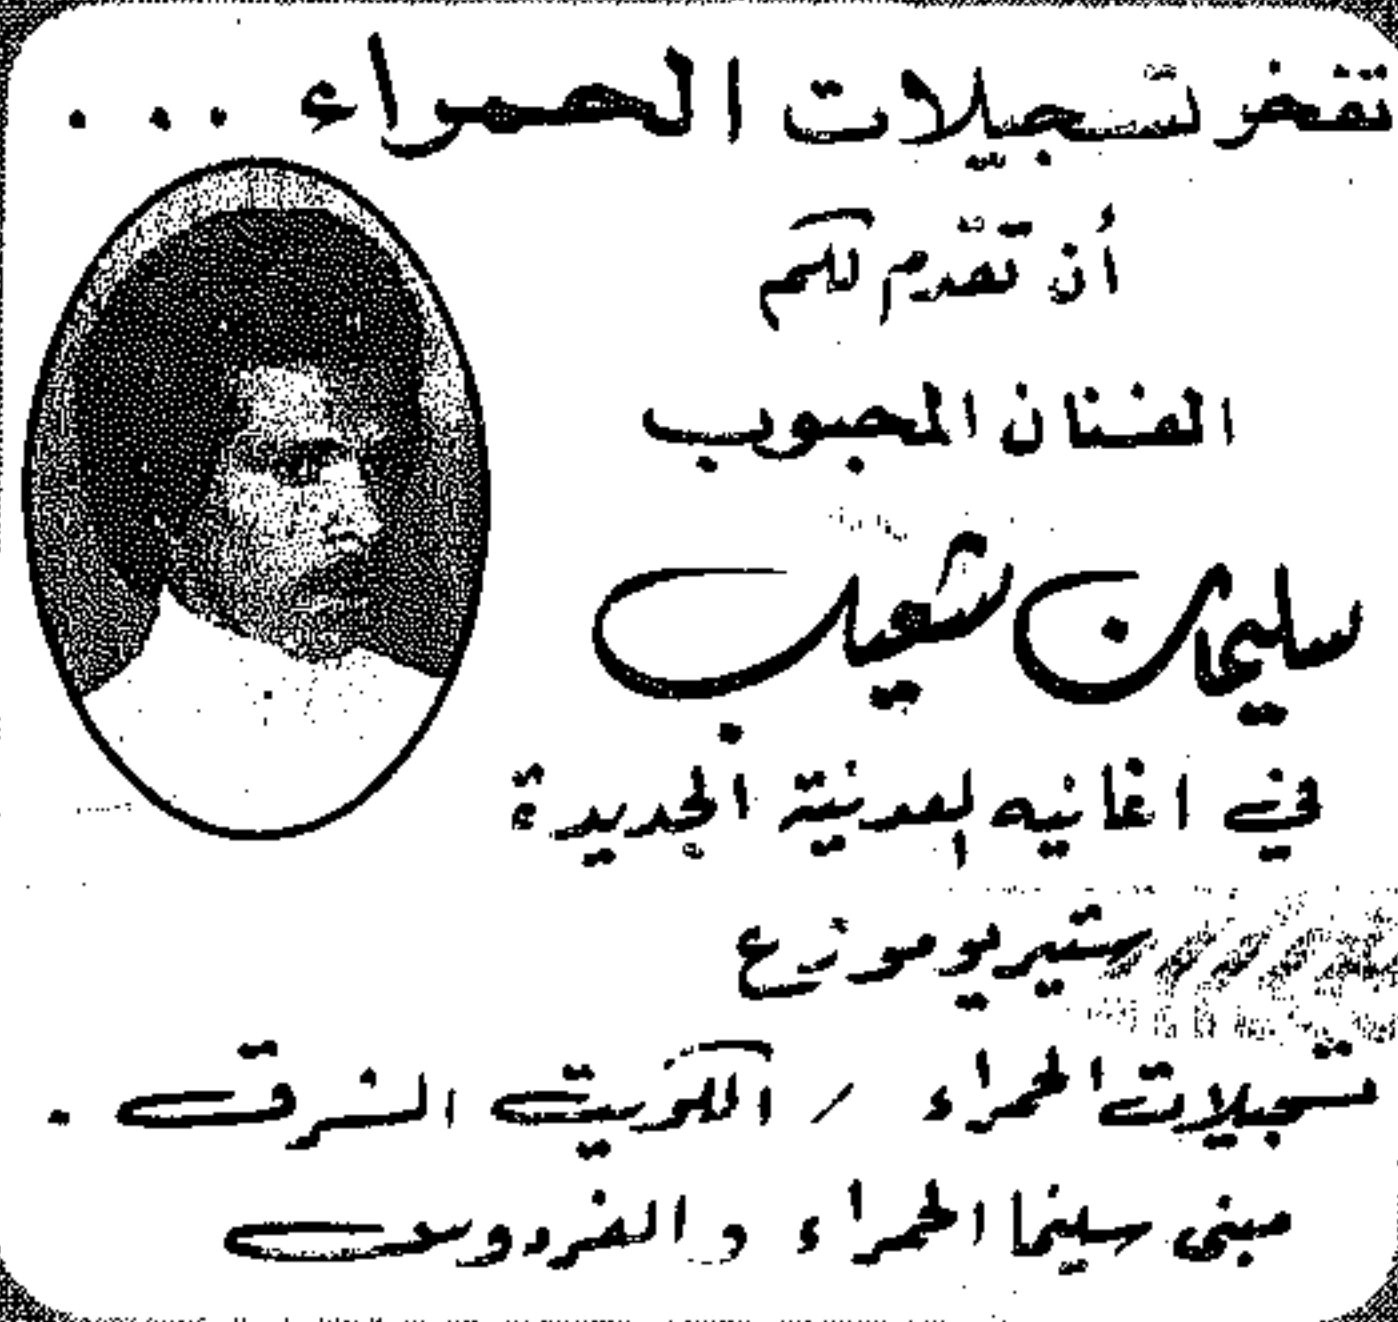 تفخر تسجيلات الحمراء ...
أن تقدم لكم
الفنان المحبوب
سليمان شعيب
في اغانيه العدنية الجديدة
ستيريو موزع
تسجيلات الحمراء / الكويت الشرق .
مبنى سينما الحمراء والفردوس